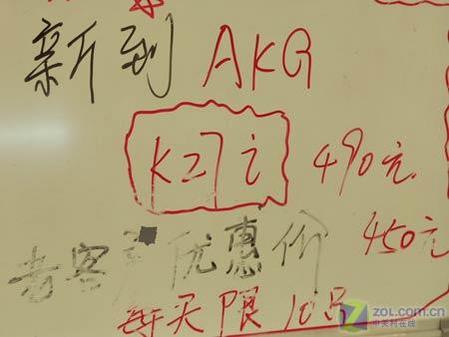 新到 AKG
K27i 490元
老客户优惠价 450元
每天限10只
ZOL.COM.CN
中关村在线